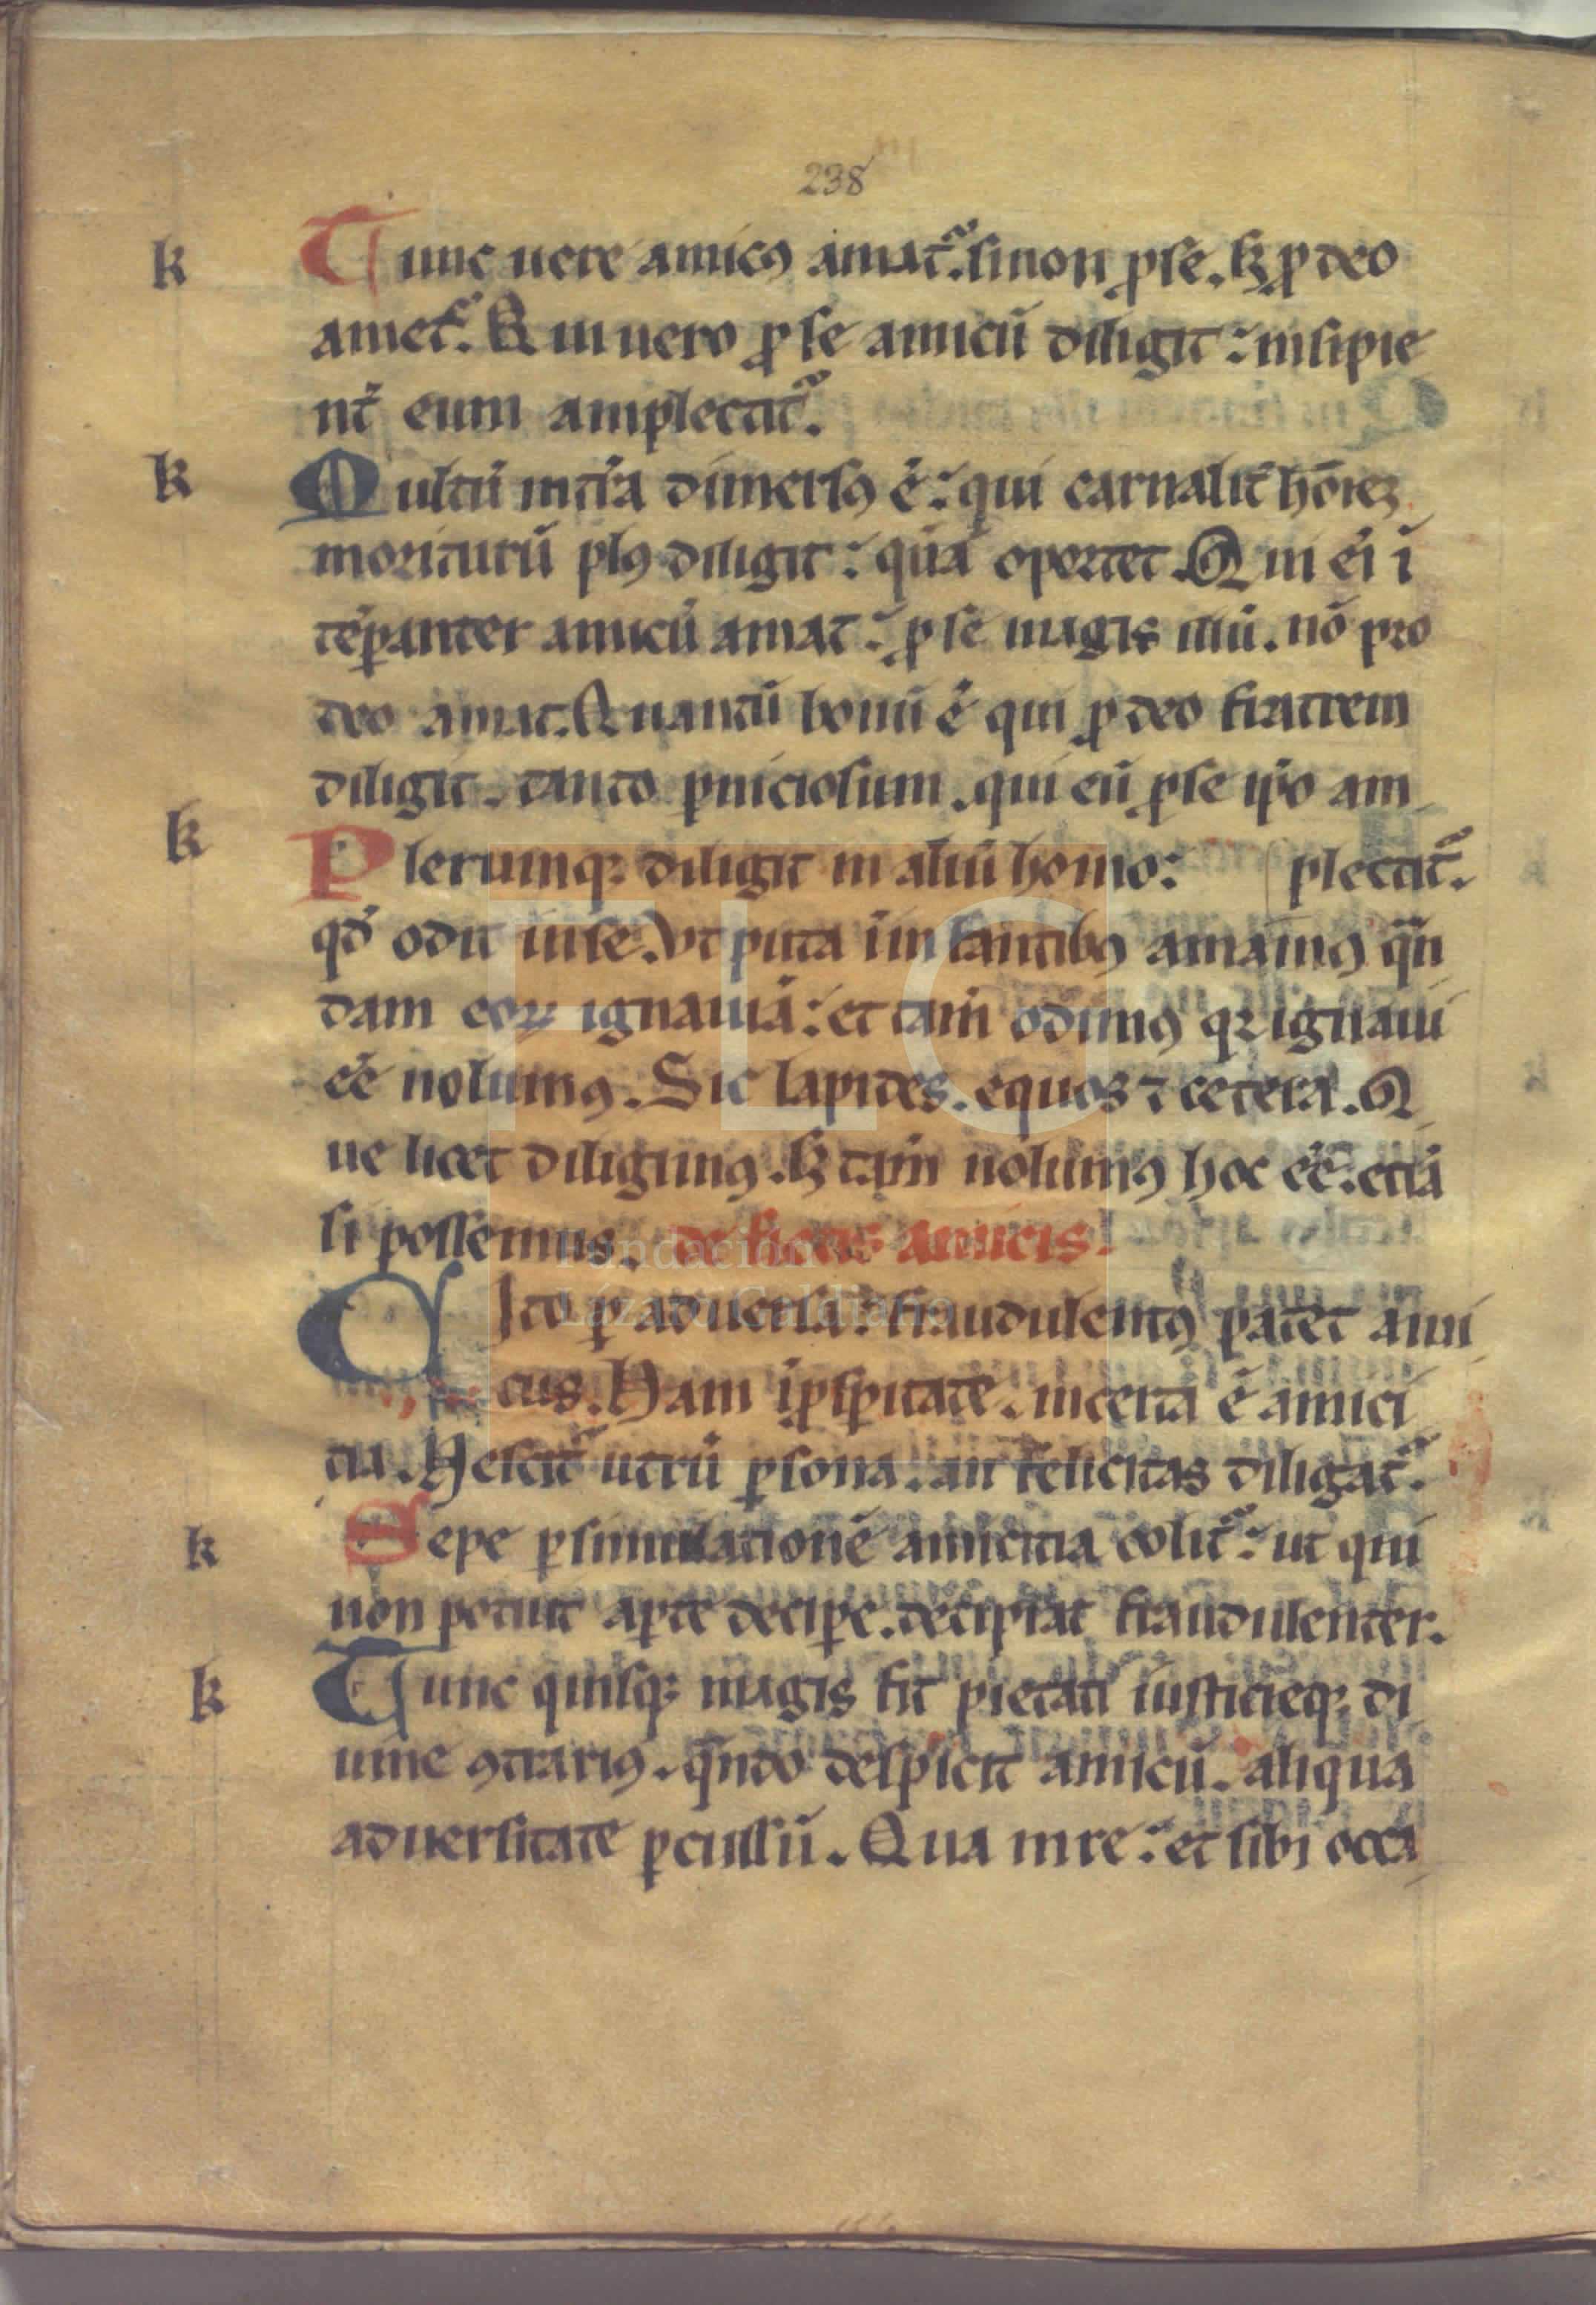 238
k Tunc uere amicꝰ amat᷑. si non ꝓ se. sꝫ ꝓ deo
amet᷑. Qui uero ꝓ se amicū diligit: insipie
nt̄ eum amplectit᷑.
k Multū in tr̄a dimersꝰ ē: qui carnalit̄ hōiem
moriturū plꝰ diligit: quā oportet. Qui ei i
tēꝑanter amicū amat: ꝓ se magis illū. nō pro
deo amat. Quantū bonū ē qui ꝓ deo fratrem
diligit. tanto ꝑniciosum. qui eū ꝓ se ip̄o am
k Plerumqꝫ diligit in aliū homo: plectit᷑.
qd̄ odit in se. Vt puta i infantibꝰ amamꝰ qn̄
dam eoꝝ ignauiā: et tam̄ odimꝰ qꝛ ignaui
eē nolumꝰ. Sic lapides. equos ⁊ cetera. Q
ue licet diligimꝰ. sꝫ tam̄ nolumꝰ hoc eē. etiā
si possemus. de fictis amicis.
Cito ꝑ aduersa: fraudulentꝰ patet ami
cus. Nam i ꝓsꝑitate. incerta ē amici
tia. Nescit᷑ utrū ꝑsona. an felicitas diligat᷑.
k Sepe ꝑ simulationē amicitia colit᷑: ut qui
non potuit aꝑte deciꝑe. decipiat fraudulenter.
k Tunc quisqꝫ magis fit pietati iusticieqꝫ di
uine ꝯtrariꝰ. qn̄do despicit amicū. aliqua
aduersitate ꝑcussū. Qua in re: et sibi occa